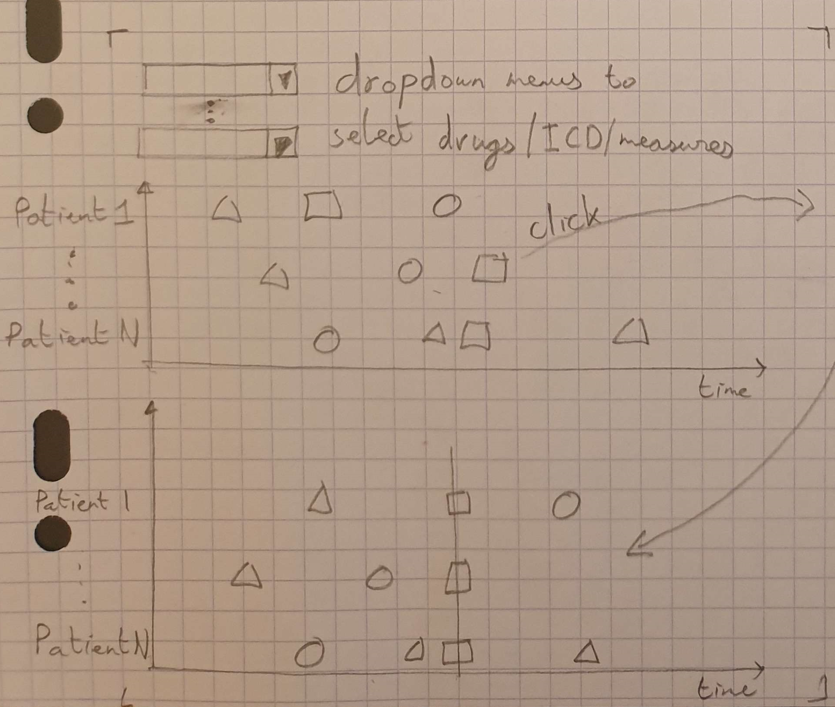 dropdown menus to
select drugs/ICD/measures
Patient 1
click
Patient N
time
Patient 1
Patient N
time